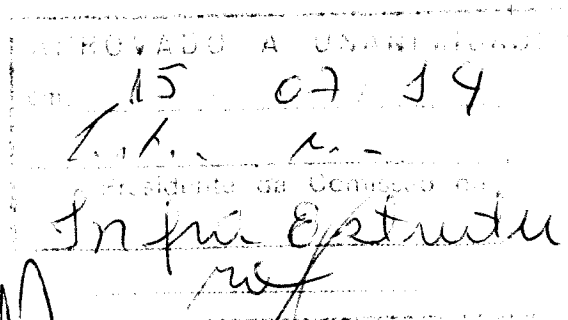 APROVADO A UNANIMIDADE
em 15 07 14
Presidente da Comissão de
Infra Estrutu
ra